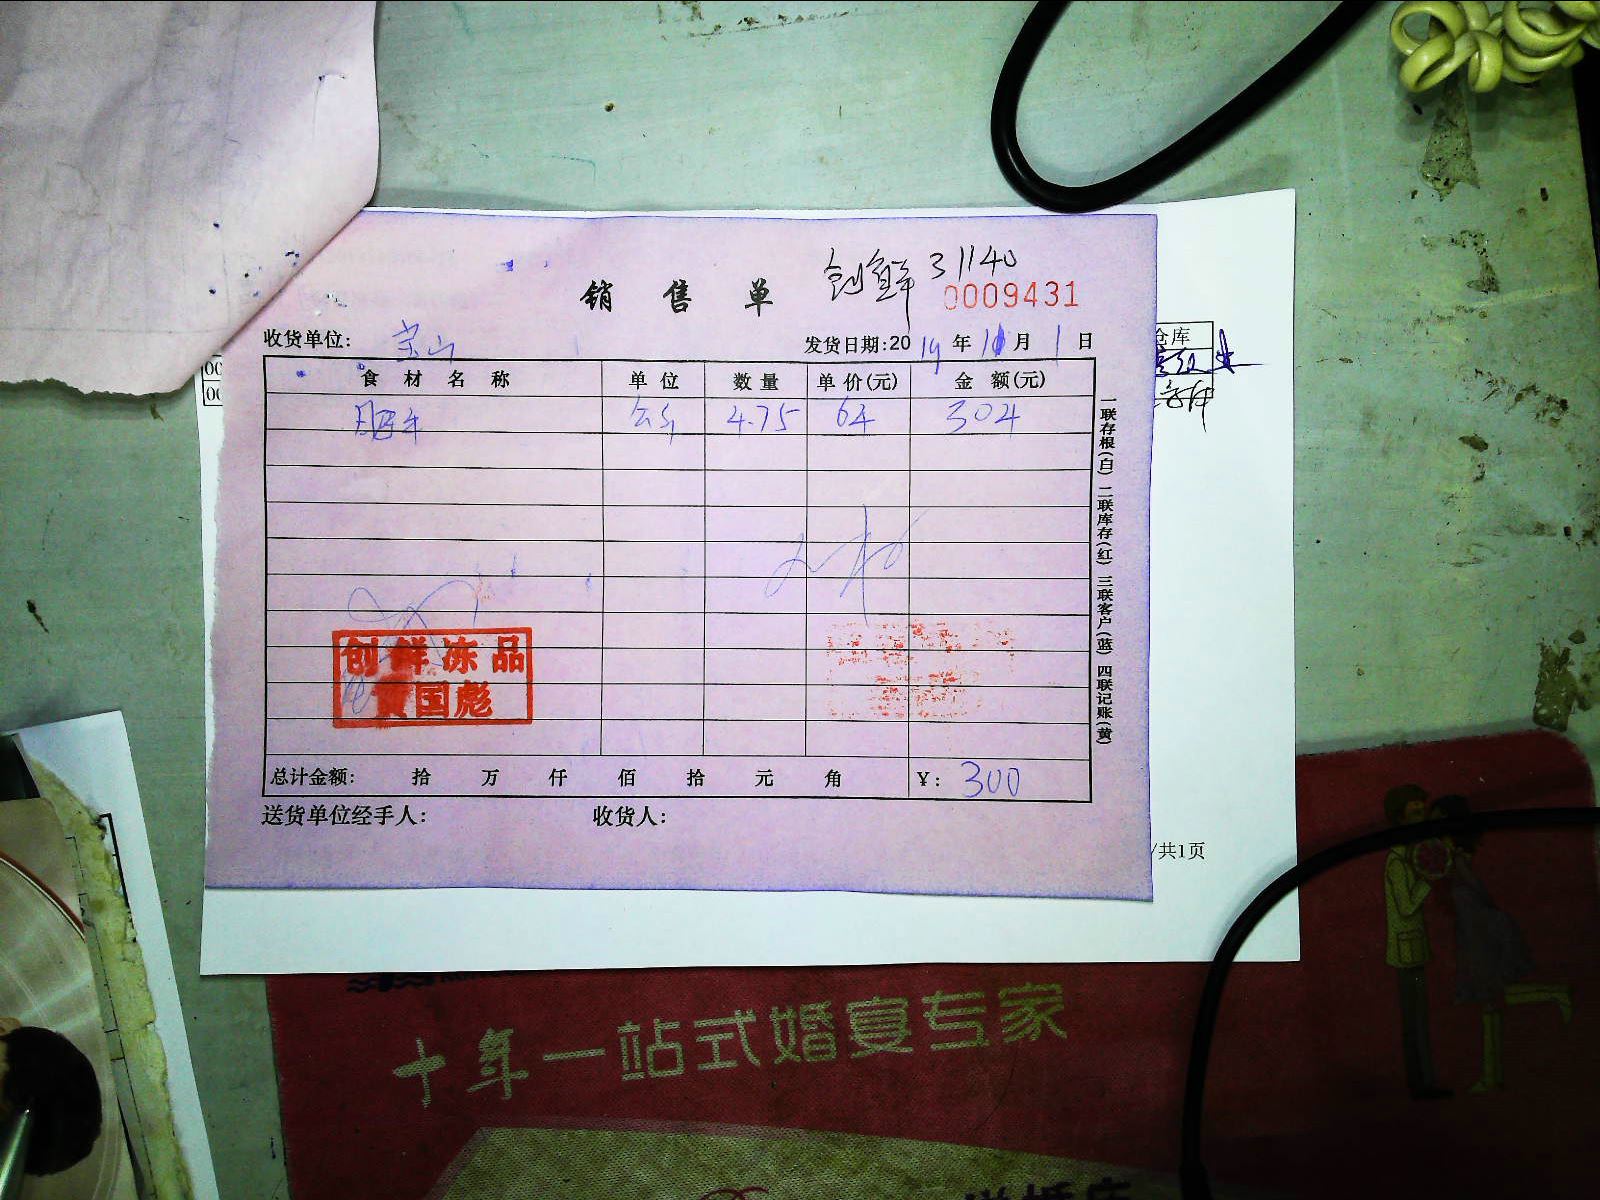 创鲜 31140
销售单 0009431
收货单位: 发货日期:2019年10月1日
食材名称 单位 数量 单价(元) 金额(元)
肥牛 公斤 4.75 64 304
创鲜冻品
黄国彪
总计金额: 拾 万 仟 佰 拾 元 角 ¥: 300
送货单位经手人: 收货人:
一联存根(白) 二联库存(红) 三联客户(蓝) 四联记账(黄)
仓库
/共1页
十年一站式婚宴专家